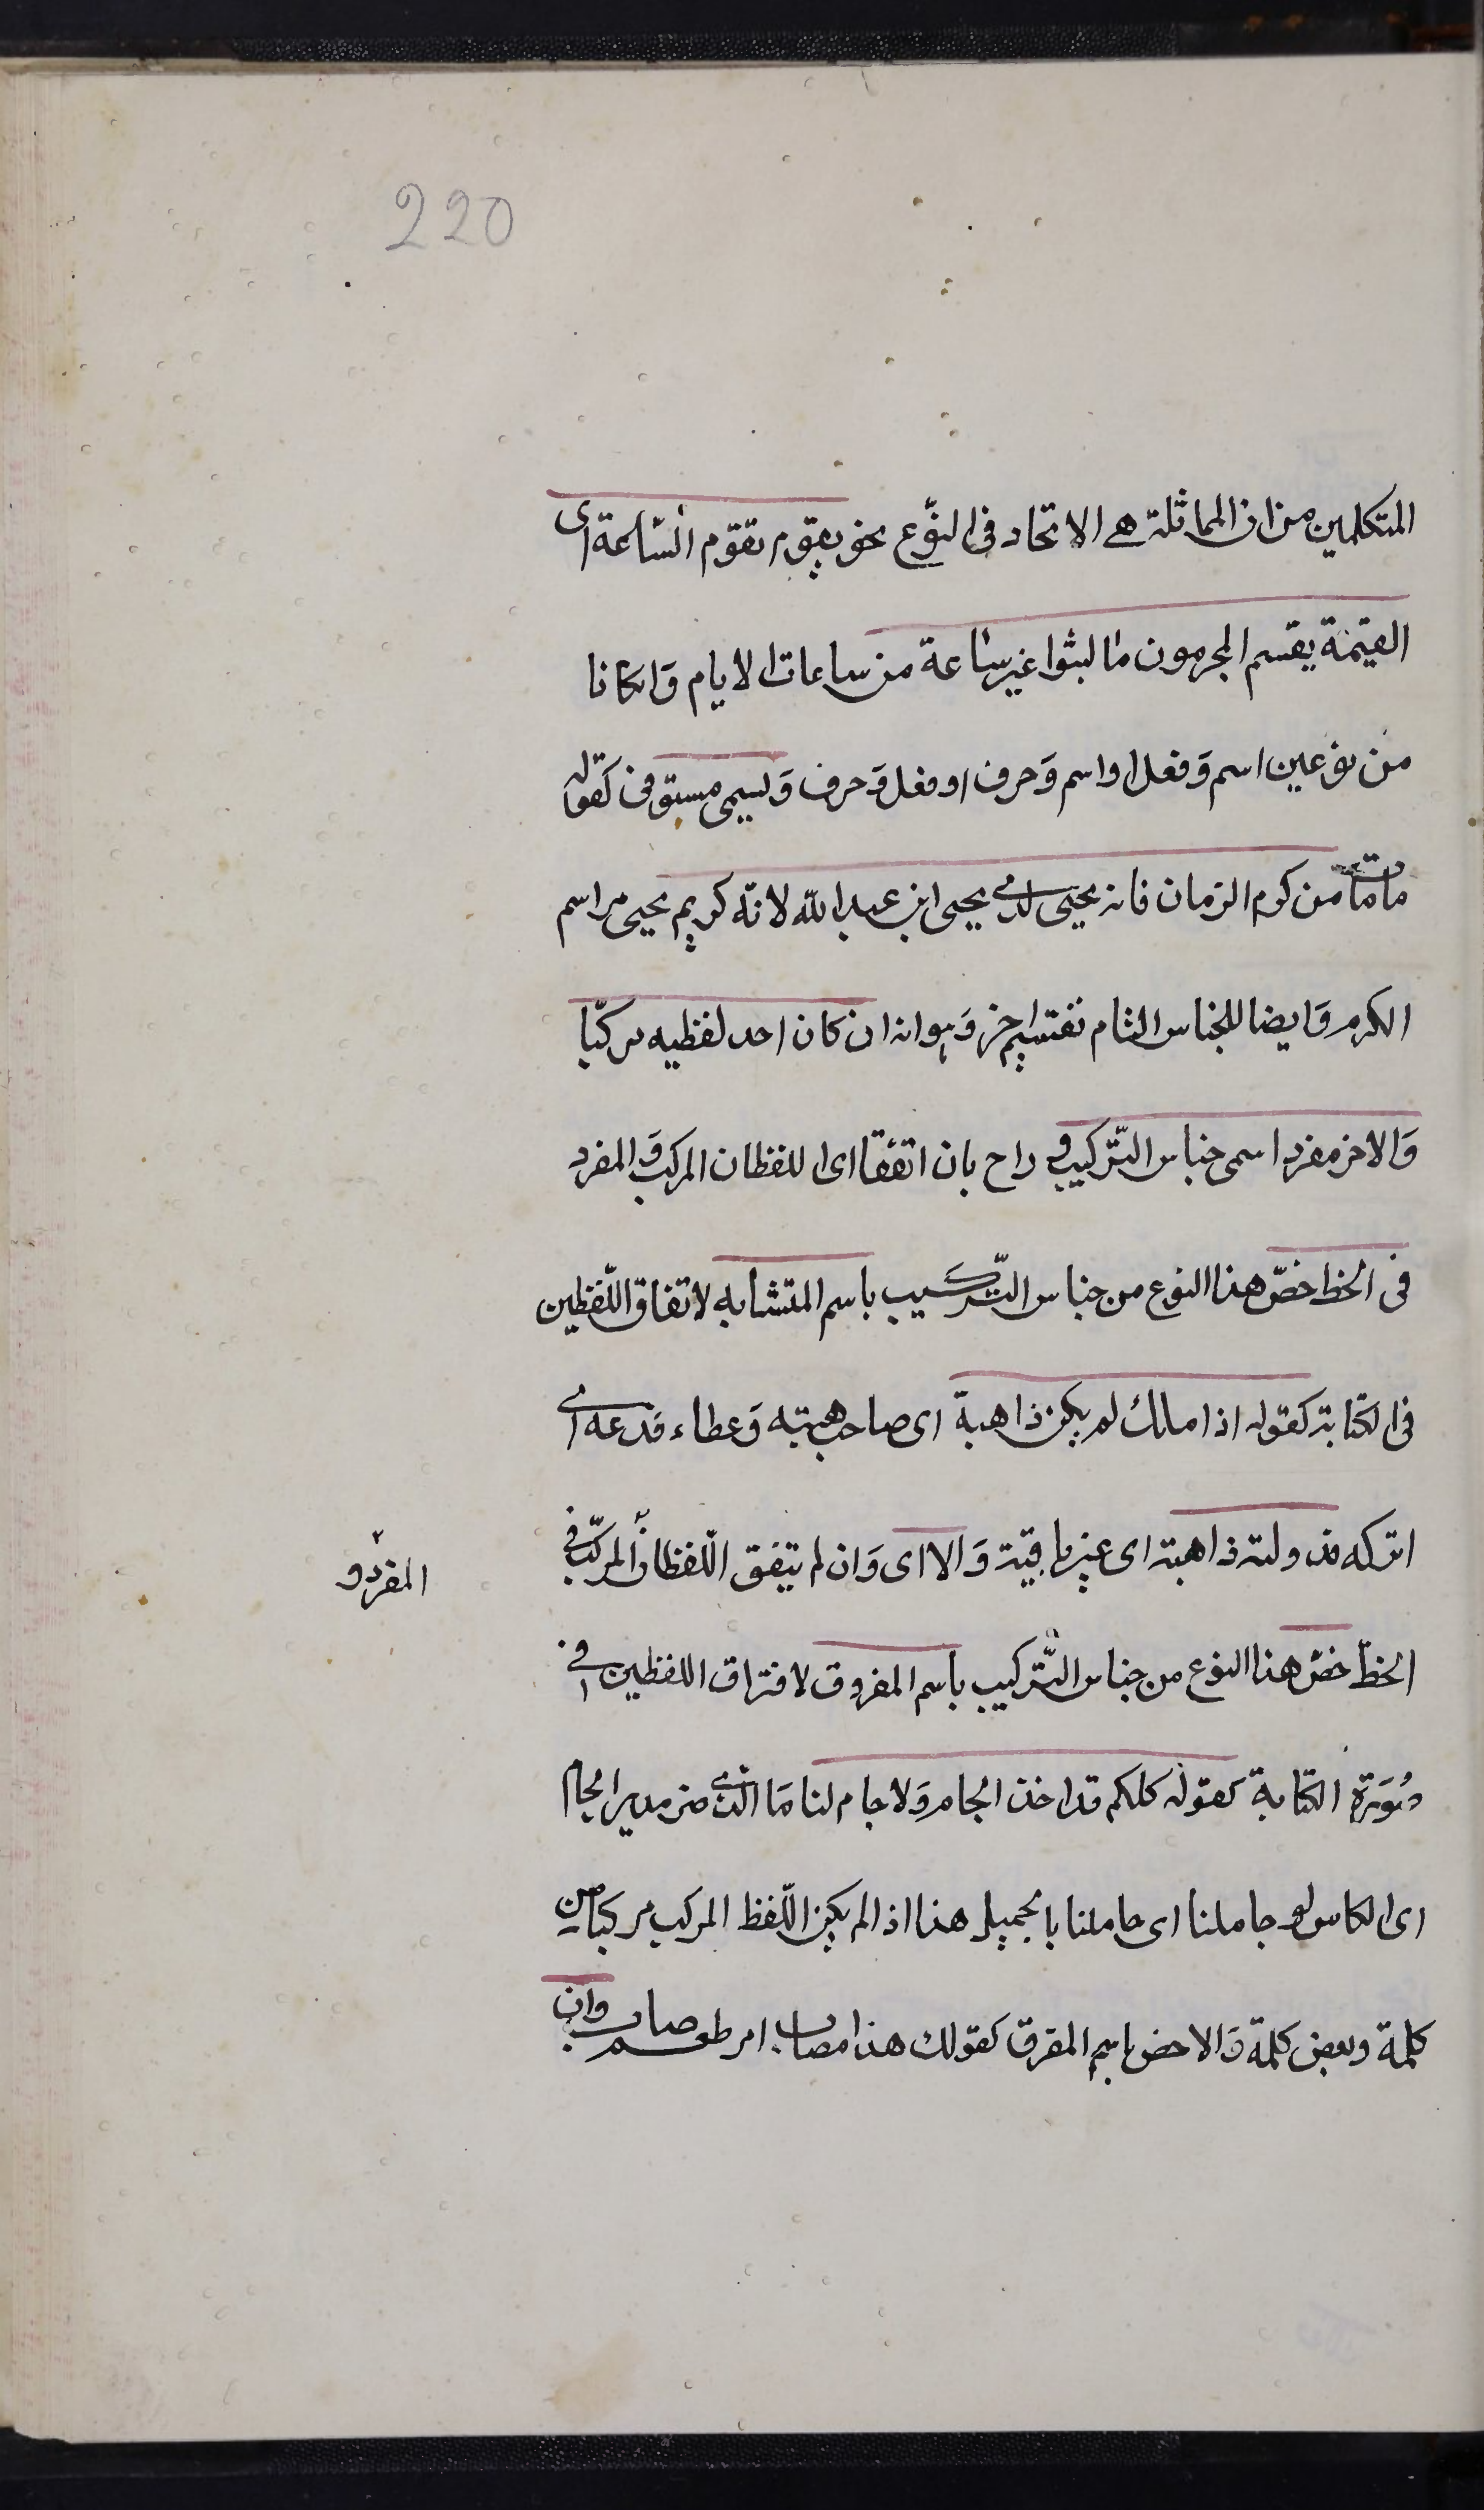 220
المتكلمين من ان المماثلة هى الاتحاد فى النوع نحو يوم تقوم الساعة اى
القيمة يقسم المجرمون ما لبثوا غير ساعة من ساعات الايام وَان كانا
من نوعين اسم وَفعل او اسم وَحرف او فعل وَحرف وَيسمى مستوفى كقوله
مامات من كرم الزمان فانه يحيى لدى يحيى ابن عبد الله لانّه كريم يحيى مراسم
الكرم وَايضا للجناس التام تقسيم اخر وَهو انه ان كان احد لفظيه مركّبا
وَالاخر مفردا سمى جناس التّركيب وح بان اتفقا اى اللفظان المركب وَالمفرد
فى الخط خصّ هذا النوع من جناس التّركيب باسم المتشابه لاتفاق اللّفظين
فى الكتابة كقوله اذا ملك لم يكن ذا هبة اى صاحب هبة وَعطاء فدعه اى
اتركه فدولته ذاهبة اى غير باقية وَالا اى وَان لم يتفق اللّفظان المركّب فى
المفرد و
الخط خصّ هذا النوع من جناس التّركيب باسم المفروق لافتراق اللفظين فى
صُوَرة الكتابة كقوله كلكم قد اخذ الجام وَلا جام لنا مَا الذى ضر مدير الجام
اى الكاس لو جاملنا اى عاملنا بالجميل هذا اذا لم يكن اللّفظ المركب مركبا من
كلمة وبعض كلمة وَالا خص باسم المفرق كقولك هذا مصاب ام طعم صاب وان